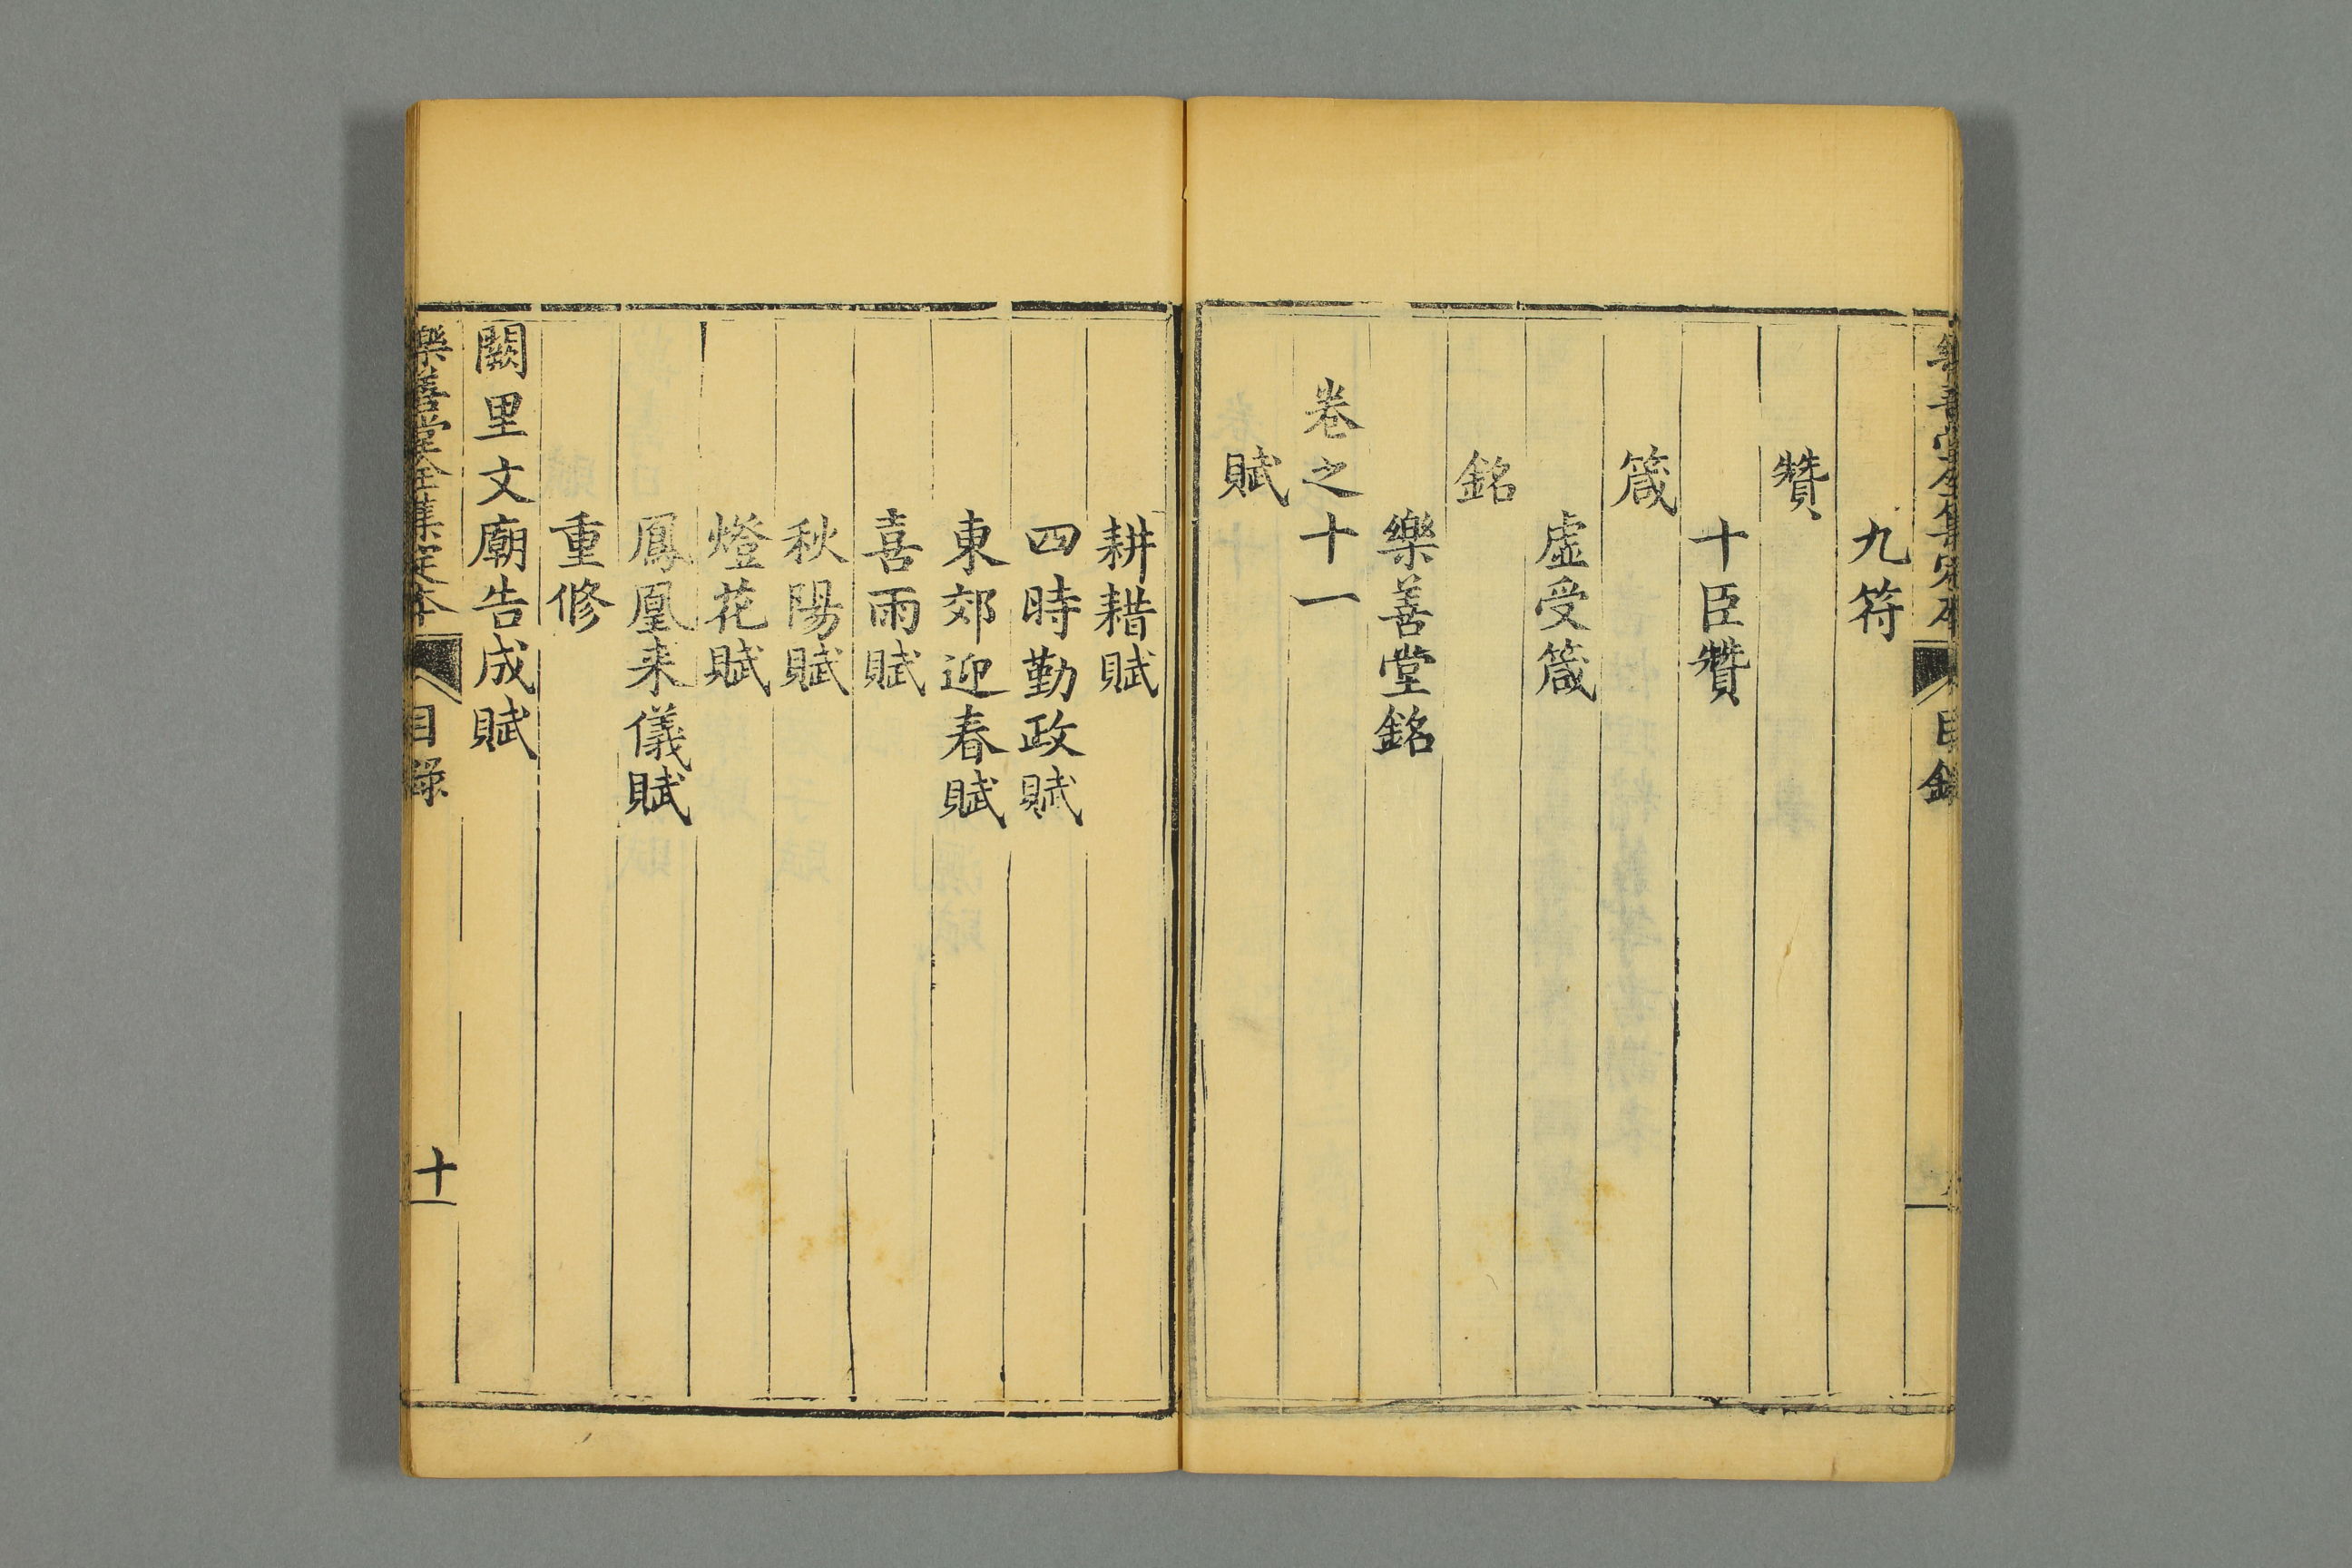 樂善堂全集定本 目錄
九符
贊
十臣贊
箴
虛受箴
銘
樂善堂銘
卷之十一
賦
耕耤賦
四時勤政賦
東郊迎春賦
喜雨賦
秋陽賦
燈花賦
鳳凰来儀賦
重修
闕里文廟告成賦
樂善堂全集定本 目錄 十